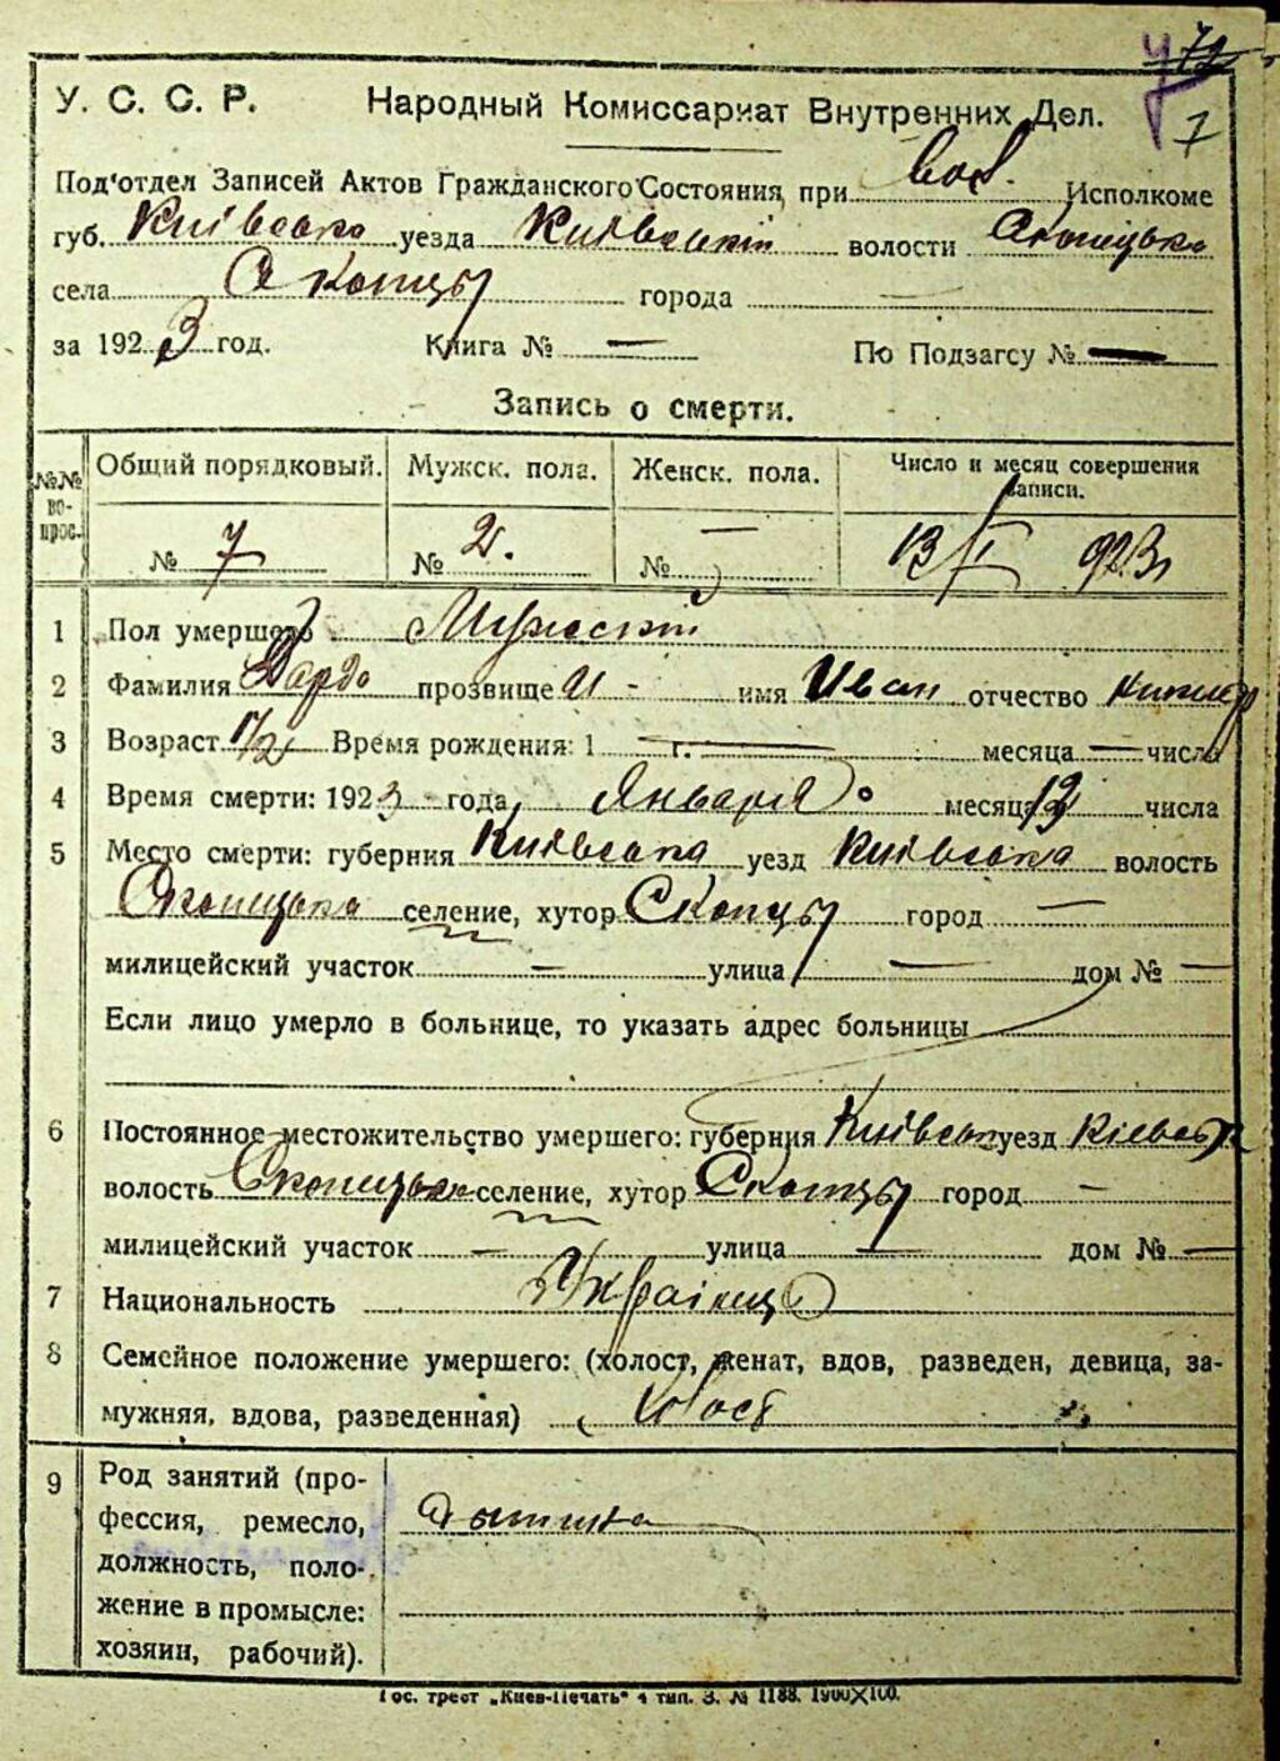 У. С. С. Р. Народный Комиссариат Внутренних Дел.
7
Под'отдел Записей Актов Гражданского Состояния, при вол. Исполкоме
губ. Київська уезда Київський волости Скопецька
села Скопцы города —
за 1923 год. Книга № — По Подзагсу № —
Запись о смерти.
№№ вопрос. Общий порядковый. Мужск. пола. Женск. пола. Число и месяц совершения
записи.
№ 7 № 2. № — 13/I 923
1 Пол умершего Мужеский
2 Фамилия прозвище имя Иван отчество
3 Возраст 1/2 Время рождения: 1 — г. — месяца — числа
4 Время смерти: 1923 года, Января месяца 12 числа
5 Место смерти: губерния Київська уезд Київська волость
Скопецька селение, хутор Скопцы город —
милицейский участок — улица — дом № —
Если лицо умерло в больнице, то указать адрес больницы
6 Постоянное местожительство умершего: губерния Київська уезд
волость Скопецька селение, хутор Скопцы город —
милицейский участок — улица — дом № —
7 Национальность Українець
8 Семейное положение умершего: (холост, женат, вдов, разведен, девица, за-
мужняя, вдова, разведенная) Холост
9 Род занятий (про-
фессия, ремесло, дытына
должность, поло-
жение в промысле:
хозяин, рабочий).
Гос. трест „Киев-Печать" 4 тип. З. № 1188. 1900×100.